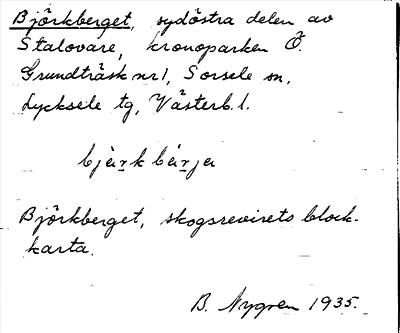 Björkberget, sydöstra delen av
Stalovare, kronoparken Ö.
Grundträsk nr 1, Sorsele sn,
Lycksele tg, Västerb. l.
bjärk bärja
Björkberget, skogsrevirets block-
karta.
B. Nygren 1935.